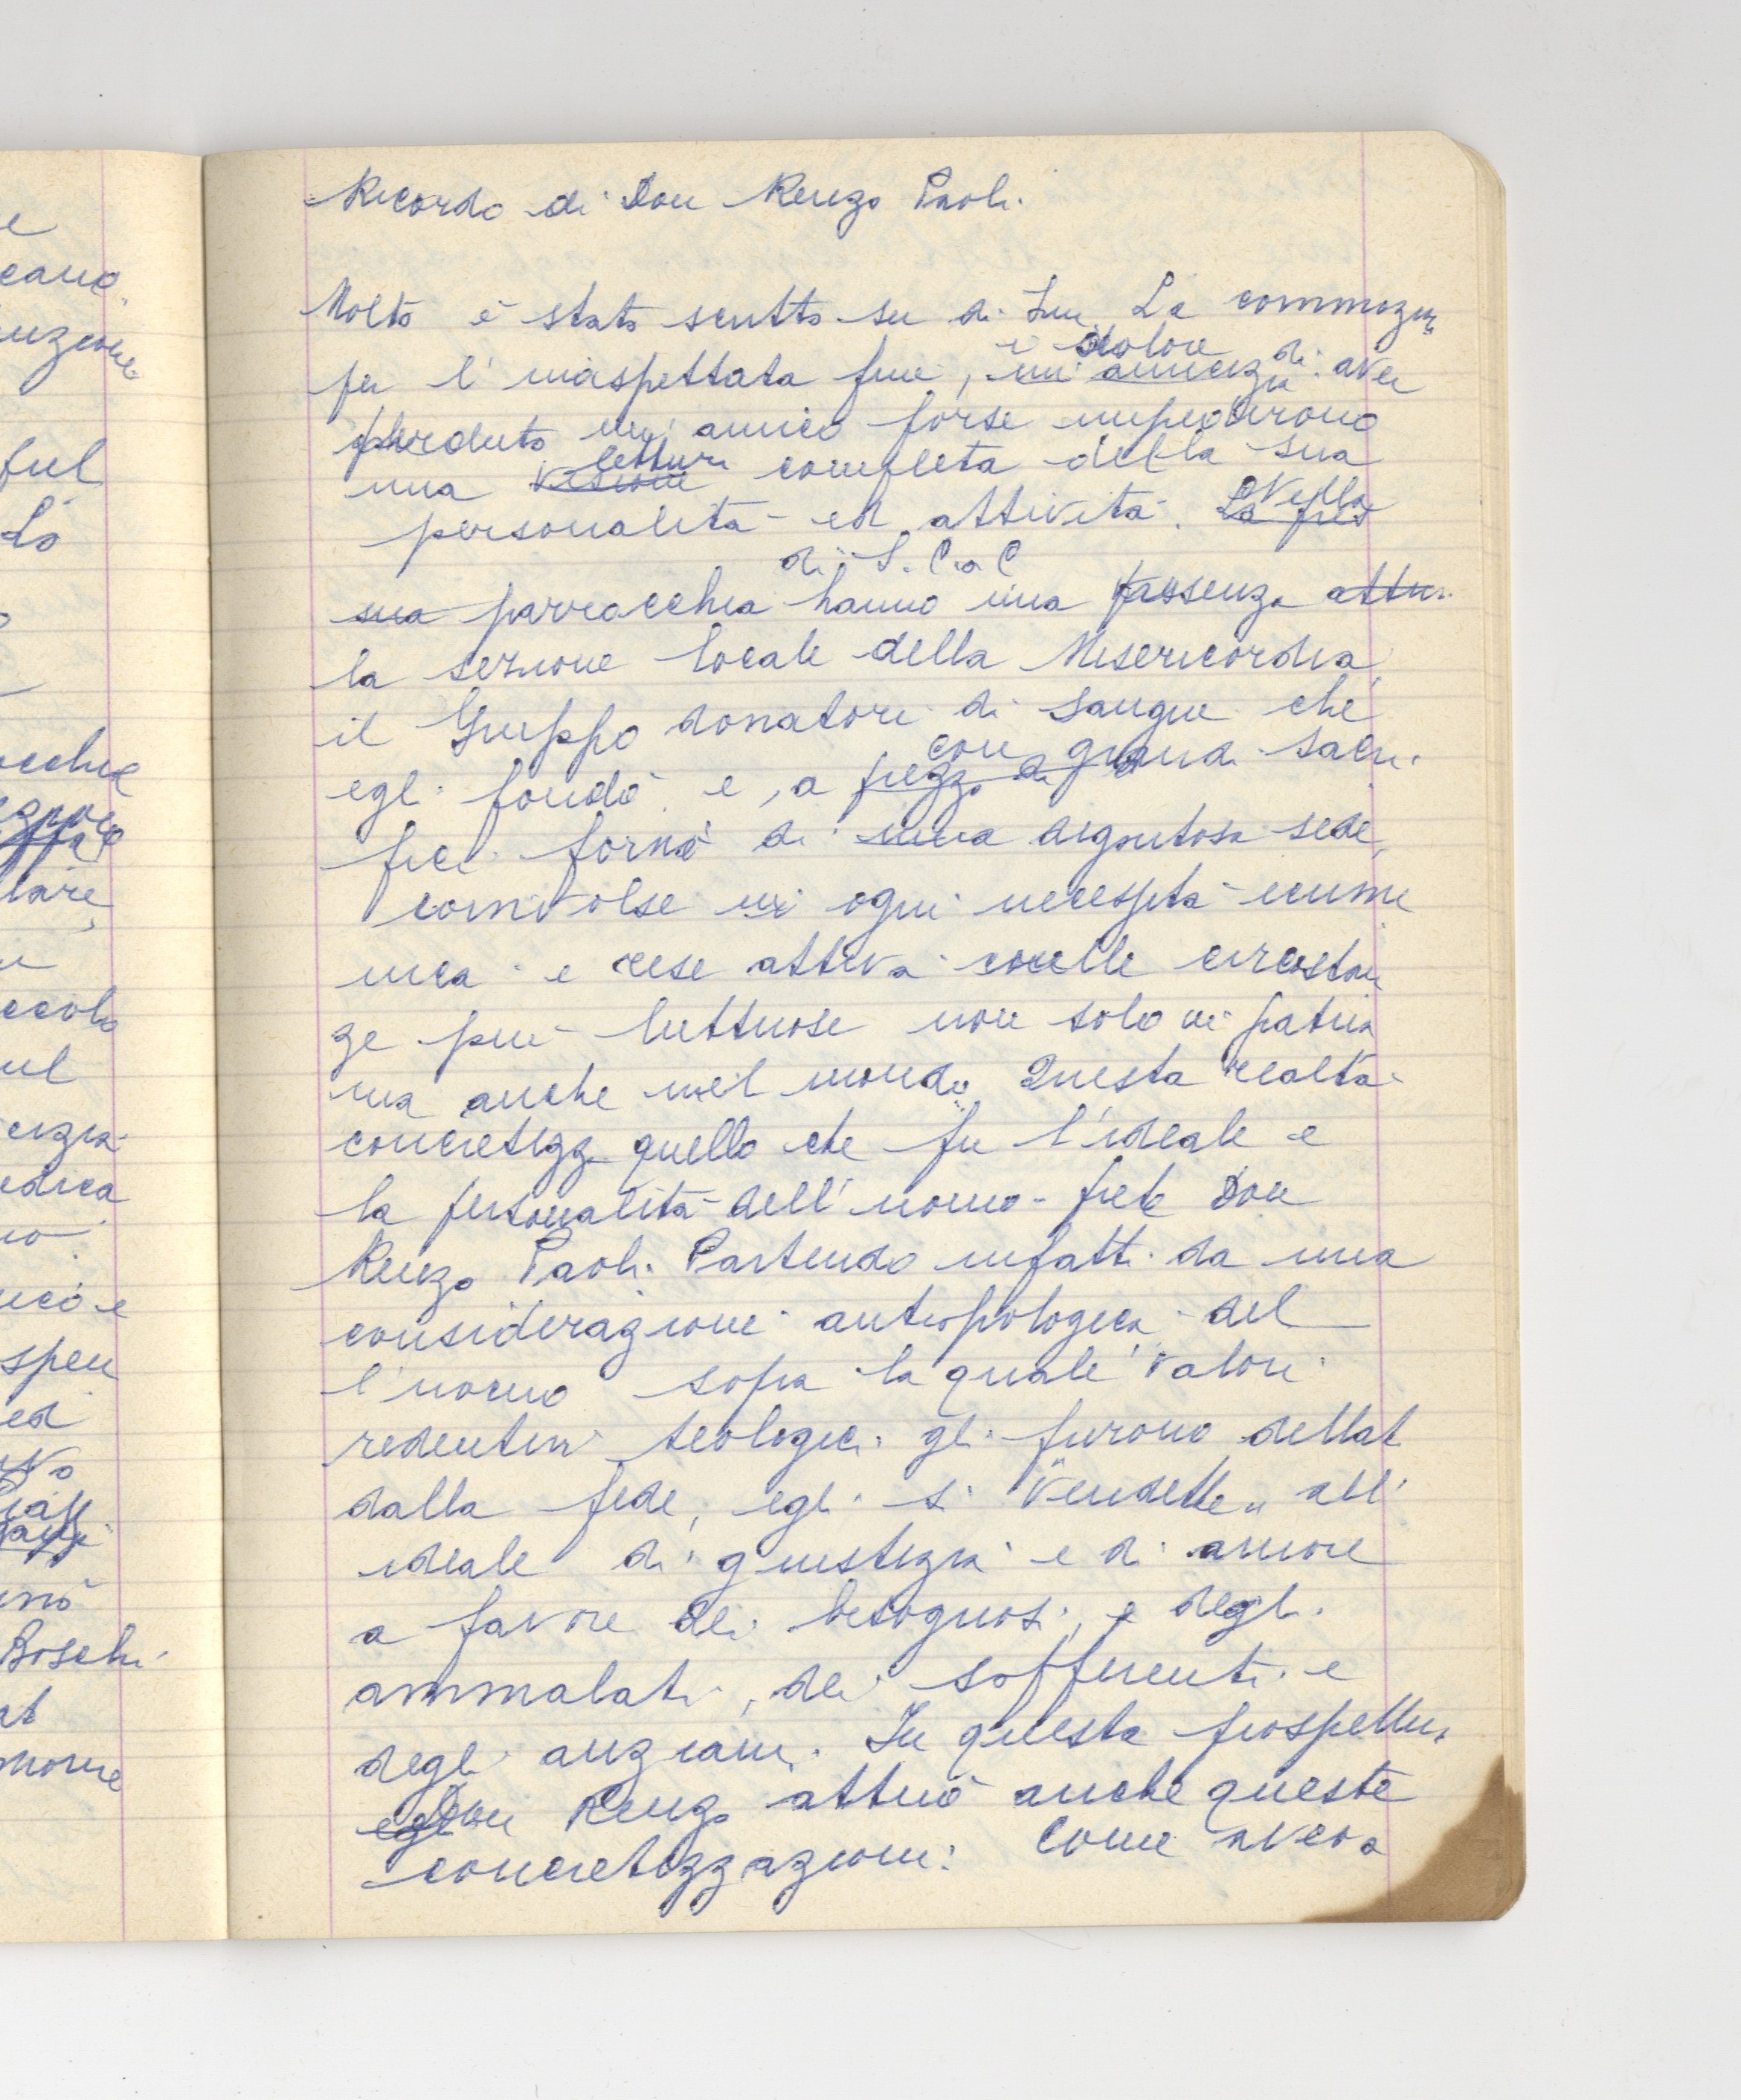 Ricordo di Don Renzo Paoli.
Molto è stato scritto su di Lui. La commozion
per l'inaspettata fine, il dolore di aver
perduto un amico forse impedirono
una lettura completa della sua
personalità ed attività. Nella
parrocchia di S. P. a C hanno una
la sezione locale della Misericordia,
il Gruppo donatori di sangue che
egli fondò e, a con grandi sacri
fici fornì di dignitosa sede,
coinvolse in ogni necessità ecume
nica e rese attiva nelle circostan
ze più luttuose non solo in patria
ma anche nel mondo. Questa realtà
concretizza quello che fu l'ideale e
la personalità dell'uomo-prete Don
Renzo Paoli. Partendo infatti da una
considerazione antropologica del
l'uomo sopra la quale valori
redentivi teologici gli furono dettat
dalla fede, egli si "vendette" all'
ideale di giustizia e di amore
a favore dei bisognosi, e degli
ammalati, dei sofferenti e
degli anziani. In questa prospettiva
Don Renzo attuò anche queste
concretizzazioni: Come aveva
ecano
ful
Lo
lare,
ul
edica
uco e
ed
Boschi